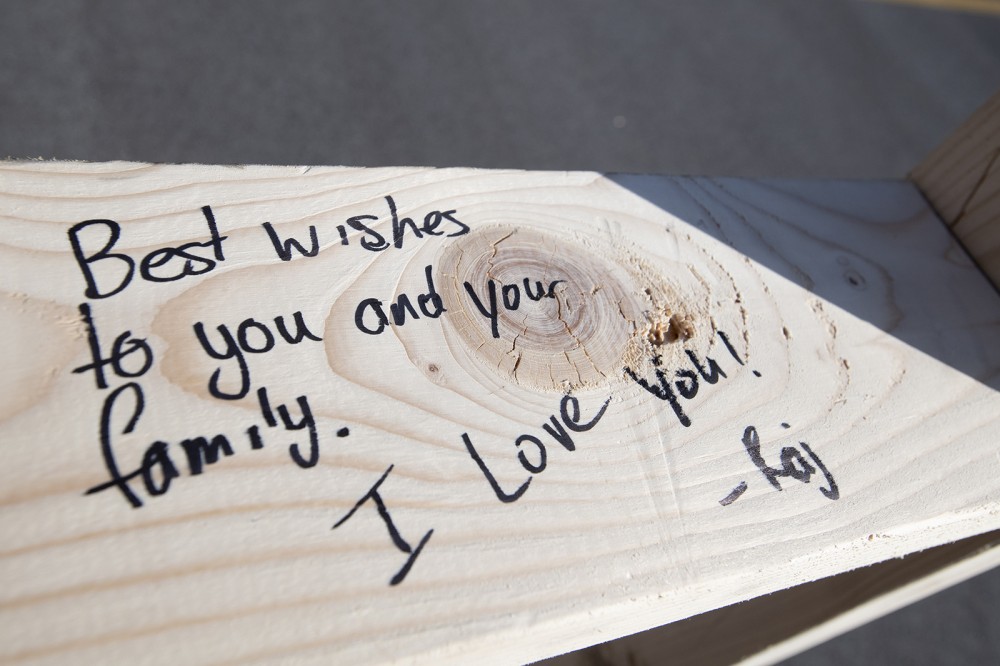 Best wishes
to you and your
family.
I Love You!
-Raj